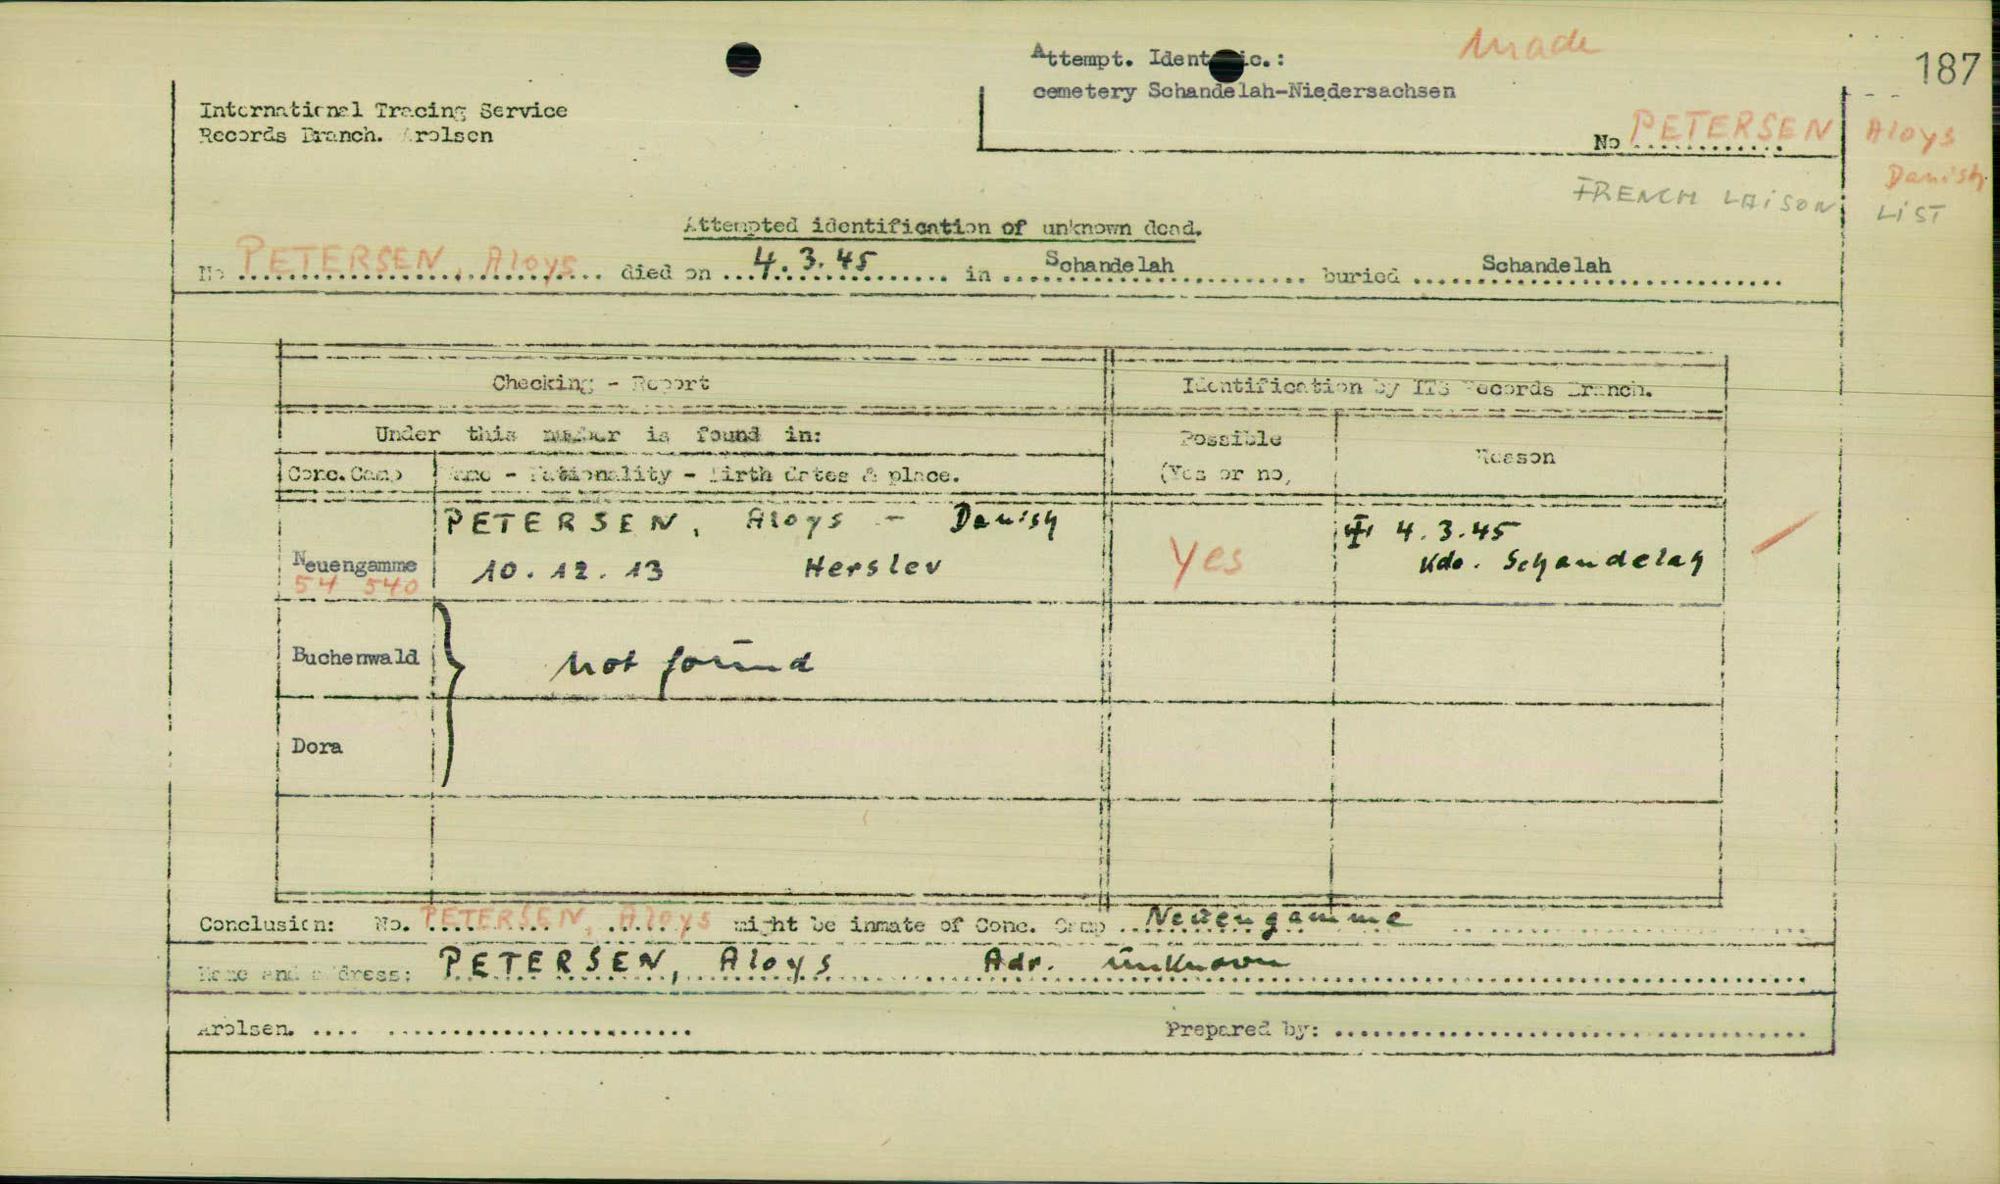 Attempt. Identific.: made
187
cemetery Schandelah-Niedersachsen
International Tracing Service
Records Branch. Arolsen
No PETERSEN Aloys
Danish
FRENCH LAISON LIST
Attempted identification of unknown dead.
No PETERSEN, Aloys died on 4.3.45 in Schandelah buried Schandelah
Checking - Report Identification by ITS Records Branch.
Under this number is found in: Possible (Yes or no) Reason
Conc.Camp Name - Nationality - Birth dates & place.
PETERSEN, Aloys - Danish 4.3.45
Neuengamme 10.12.13 Herslev Yes Kdo. Schandelah
54 540
Buchenwald not found
Dora
Conclusion: No. PETERSEN, Aloys might be inmate of Conc. Camp Neuengamme
Name and address: PETERSEN, Aloys Adr. unknown
Arolsen. .... Prepared by: